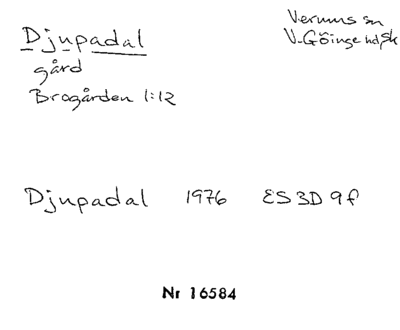 Djupadal
gård
Brogården 1:12
Verums sn
V. Göinge hd, Sk
Djupadal 1976 ES 3D 9f
Nr 16584